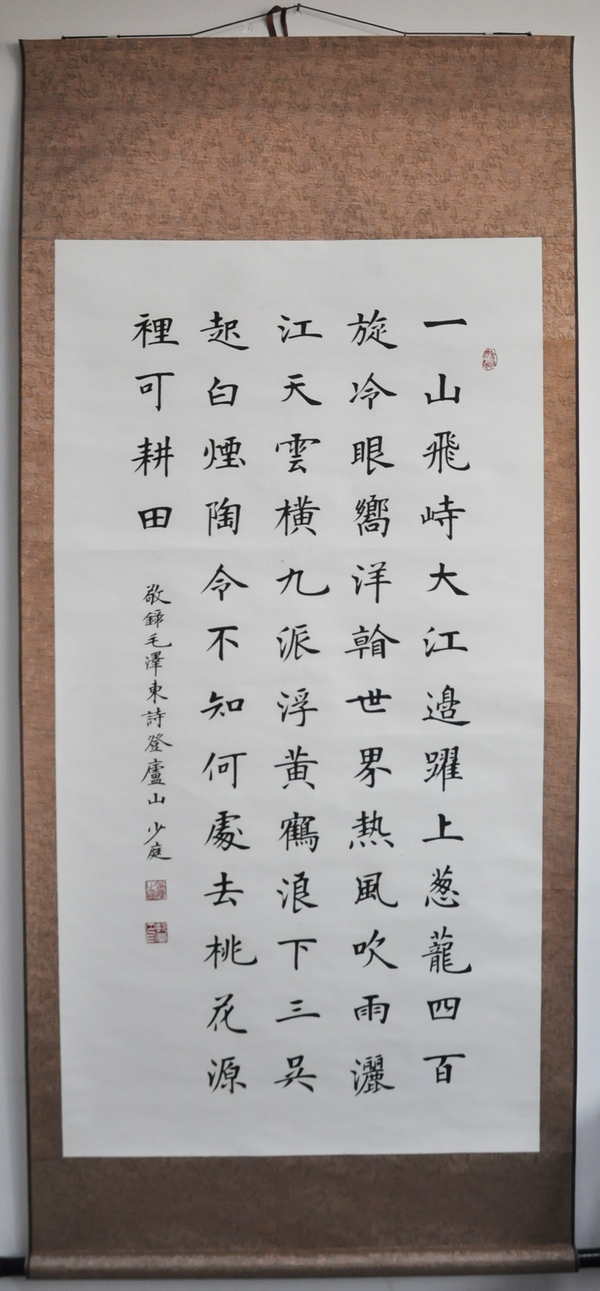 一山飛峙大江邉躍上葱蘢四百
旋冷眼嚮洋㫋世界熱風吹雨灑
江天雲横九派浮黄鶴浪下三吳
起白煙陶令不知何處去桃花源
裡可耕田
敬錄毛澤東詩登廬山 少庭